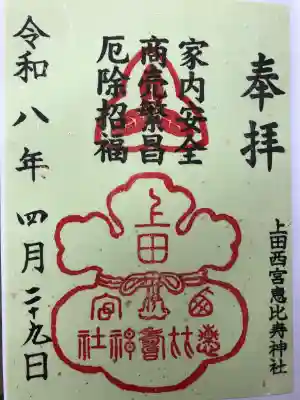 奉拝
家内安全
商売繁昌
厄除招福
上田西宮恵比寿神社
令和八年四月二十九日
上田